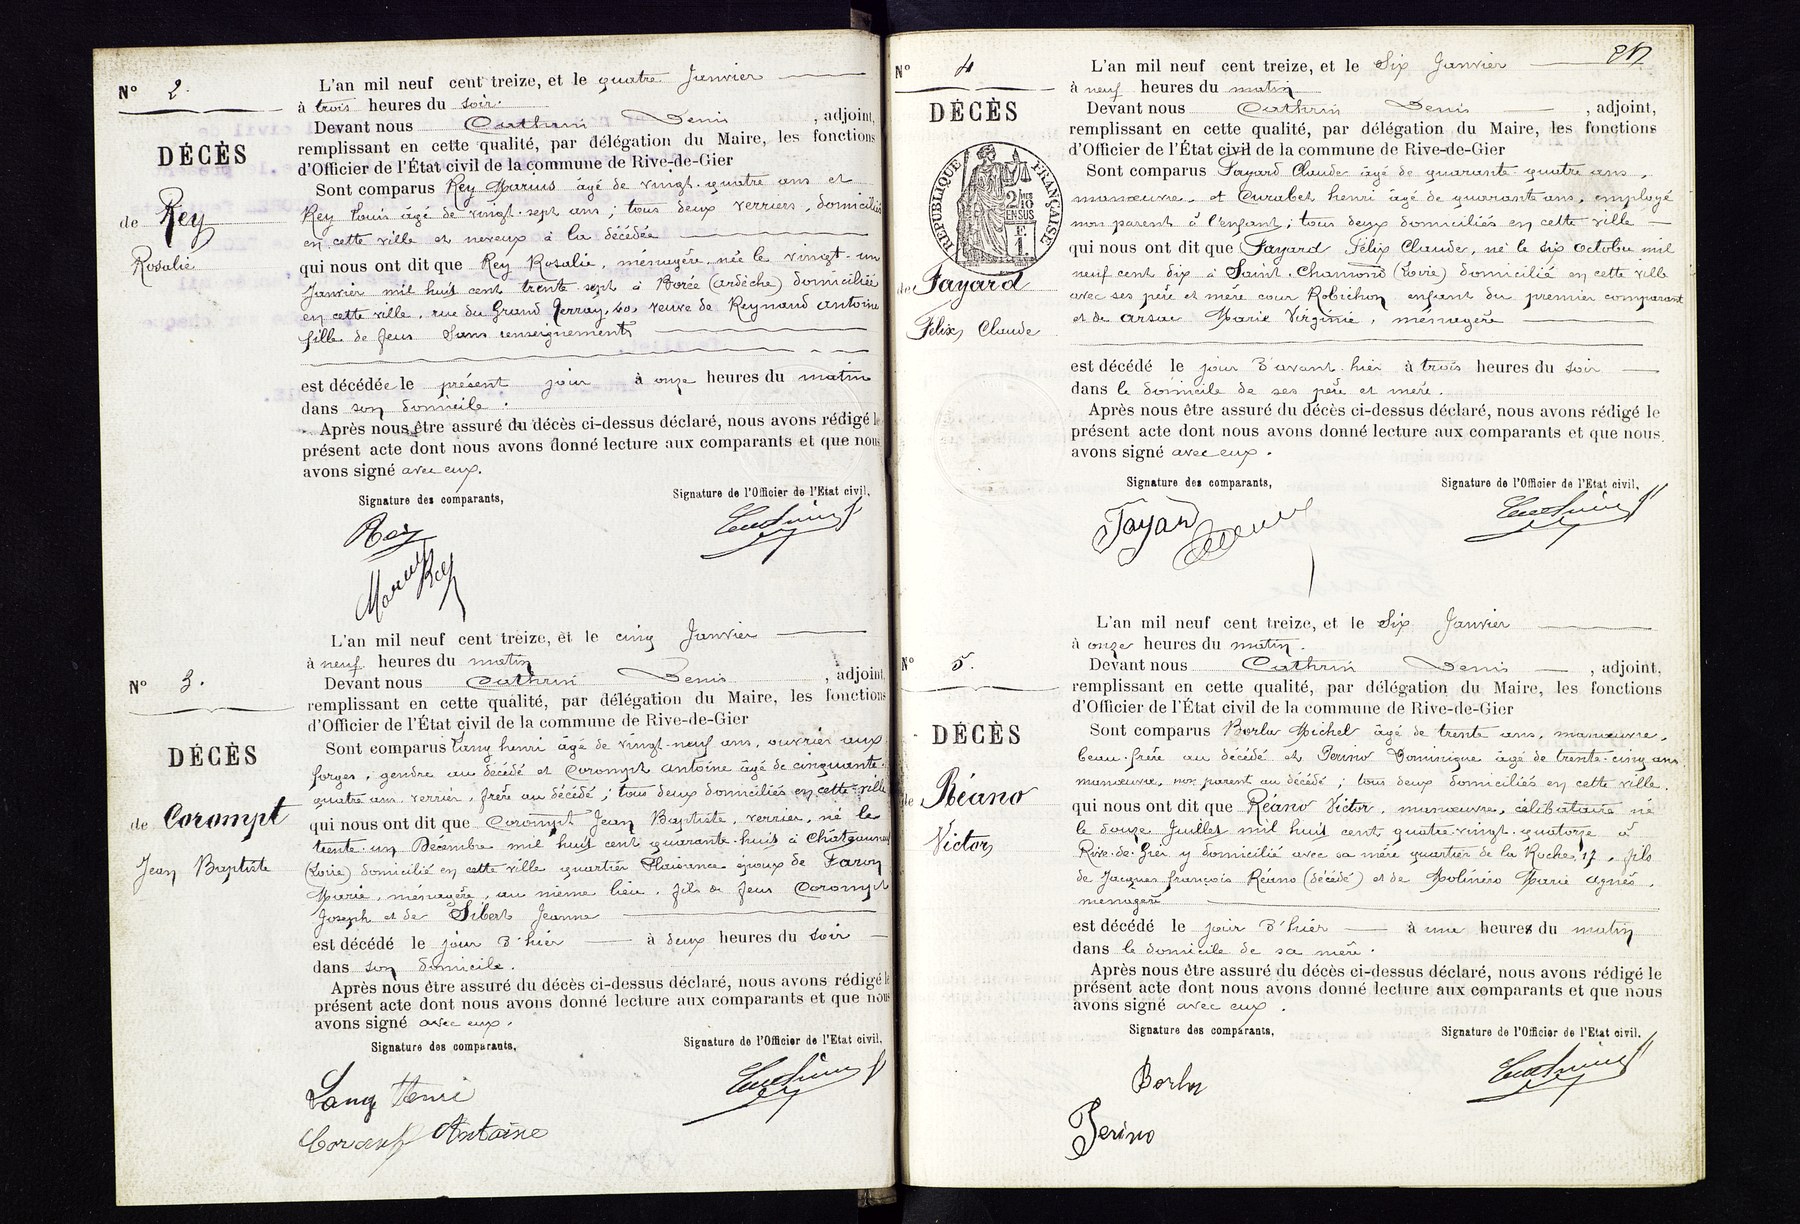 N° 2.
DÉCÈS
de Rey
Rosalie
L'an mil neuf cent treize, et le quatre Janvier
à trois heures du soir.
Devant nous Cuthrin Denis, adjoint,
remplissant en cette qualité, par délégation du Maire, les fonctions
d'Officier de l'État civil de la commune de Rive-de-Gier
Sont comparus Rey Marius âgé de vingt-quatre ans et
Rey Louis âgé de vingt-sept ans ; tous deux verriers, domiciliés
en cette ville et neveux à la décédée
qui nous ont dit que Rey Rosalie, ménagère née le vingt-un
Janvier mil huit cent trente sept à Borée (ardèche) domiciliée
en cette ville, rue du Grand Perray, 40, veuve de Reynaud antoine
fille de feus Sans renseignements
est décédée le présent jour à onze heures du matin
dans son domicile.
Après nous être assuré du décès ci-dessus déclaré, nous avons rédigé le
présent acte dont nous avons donné lecture aux comparants et que nous
avons signé avec eux.
Signature des comparants,
Signature de l'Officier de l'Etat civil,
Rey
Marius Rey
N° 3.
DÉCÈS
de Corompt
Jean Baptiste
L'an mil neuf cent treize, et le cinq Janvier
à neuf heures du matin
Devant nous Cuthrin Denis, adjoint,
remplissant en cette qualité, par délégation du Maire, les fonctions
d'Officier de l'État civil de la commune de Rive-de-Gier
Sont comparus Lang henri âgé de vingt-neuf ans, ouvrier aux
forges, gendre au décédé et Corompt antoine âgé de cinquante-
quatre ans verrier, frère au décédé ; tous deux domiciliés en cette ville
qui nous ont dit que Corompt Jean Baptiste, verrier, né le
trente-un Décembre mil huit cent quarante-huit à Châteauneuf
(Loire) domicilié en cette ville quartier Plaisance époux de Faron
Marie, ménagère, au même lieu, fils de feus Corompt
Joseph et de Sibert Jeanne
est décédé le jour d'hier à deux heures du soir
dans son domicile.
Après nous être assuré du décès ci-dessus déclaré, nous avons rédigé le
présent acte dont nous avons donné lecture aux comparants et que nous
avons signé avec eux.
Signature des comparants,
Signature de l'Officier de l'Etat civil,
Lang Henri
Antoine
N° 4
DÉCÈS
RÉPUBLIQUE FRANÇAISE
de Fayard
Félix Claude
L'an mil neuf cent treize, et le Six Janvier
à neuf heures du matin
Devant nous Cuthrin Denis, adjoint,
remplissant en cette qualité, par délégation du Maire, les fonctions
d'Officier de l'État civil de la commune de Rive-de-Gier
Sont comparus Fayard Claude âgé de quarante-quatre ans,
manœuvre, et Curabet henri âgé de quarante ans, employé
non parent à l'enfant ; tous deux domiciliés en cette ville
qui nous ont dit que Fayard Félix Claude, né le six octobre mil
neuf cent dix à Saint-Chamond (Loire) domicilié en cette ville
avec ses père et mère cour Robichon enfant du premier comparant
et de arsac Marie Virginie, ménagère
est décédé le jour d'avant-hier à trois heures du soir
dans le domicile de ses père et mère.
Après nous être assuré du décès ci-dessus déclaré, nous avons rédigé le
présent acte dont nous avons donné lecture aux comparants et que nous
avons signé avec eux.
Signature des comparants,
Signature de l'Officier de l'Etat civil,
Fayard
N° 5.
DÉCÈS
de Réano
Victor
L'an mil neuf cent treize, et le Six Janvier
à onze heures du matin.
Devant nous Cuthrin Denis, adjoint,
remplissant en cette qualité, par délégation du Maire, les fonctions
d'Officier de l'État civil de la commune de Rive-de-Gier
Sont comparus Borla Michel âgé de trente ans, manœuvre,
beau-frère au décédé et Perino Dominique âgé de trente-cinq ans
manœuvre, non parent au décédé ; tous deux domiciliés en cette ville.
qui nous ont dit que Réano Victor, manœuvre, célibataire né
le douze Juillet mil huit cent quatre-vingt-quatorze à
Rive-de-Gier y domicilié avec sa mère quartier de la Roche, 17, fils
de Jacques françois Réano (décédé) et de Molinéro Marie agnès,
ménagère
est décédé le jour d'hier à une heures du matin
dans le domicile de sa mère.
Après nous être assuré du décès ci-dessus déclaré, nous avons rédigé le
présent acte dont nous avons donné lecture aux comparants et que nous
avons signé avec eux.
Signature des comparants,
Signature de l'Officier de l'Etat civil,
Borla
Perino